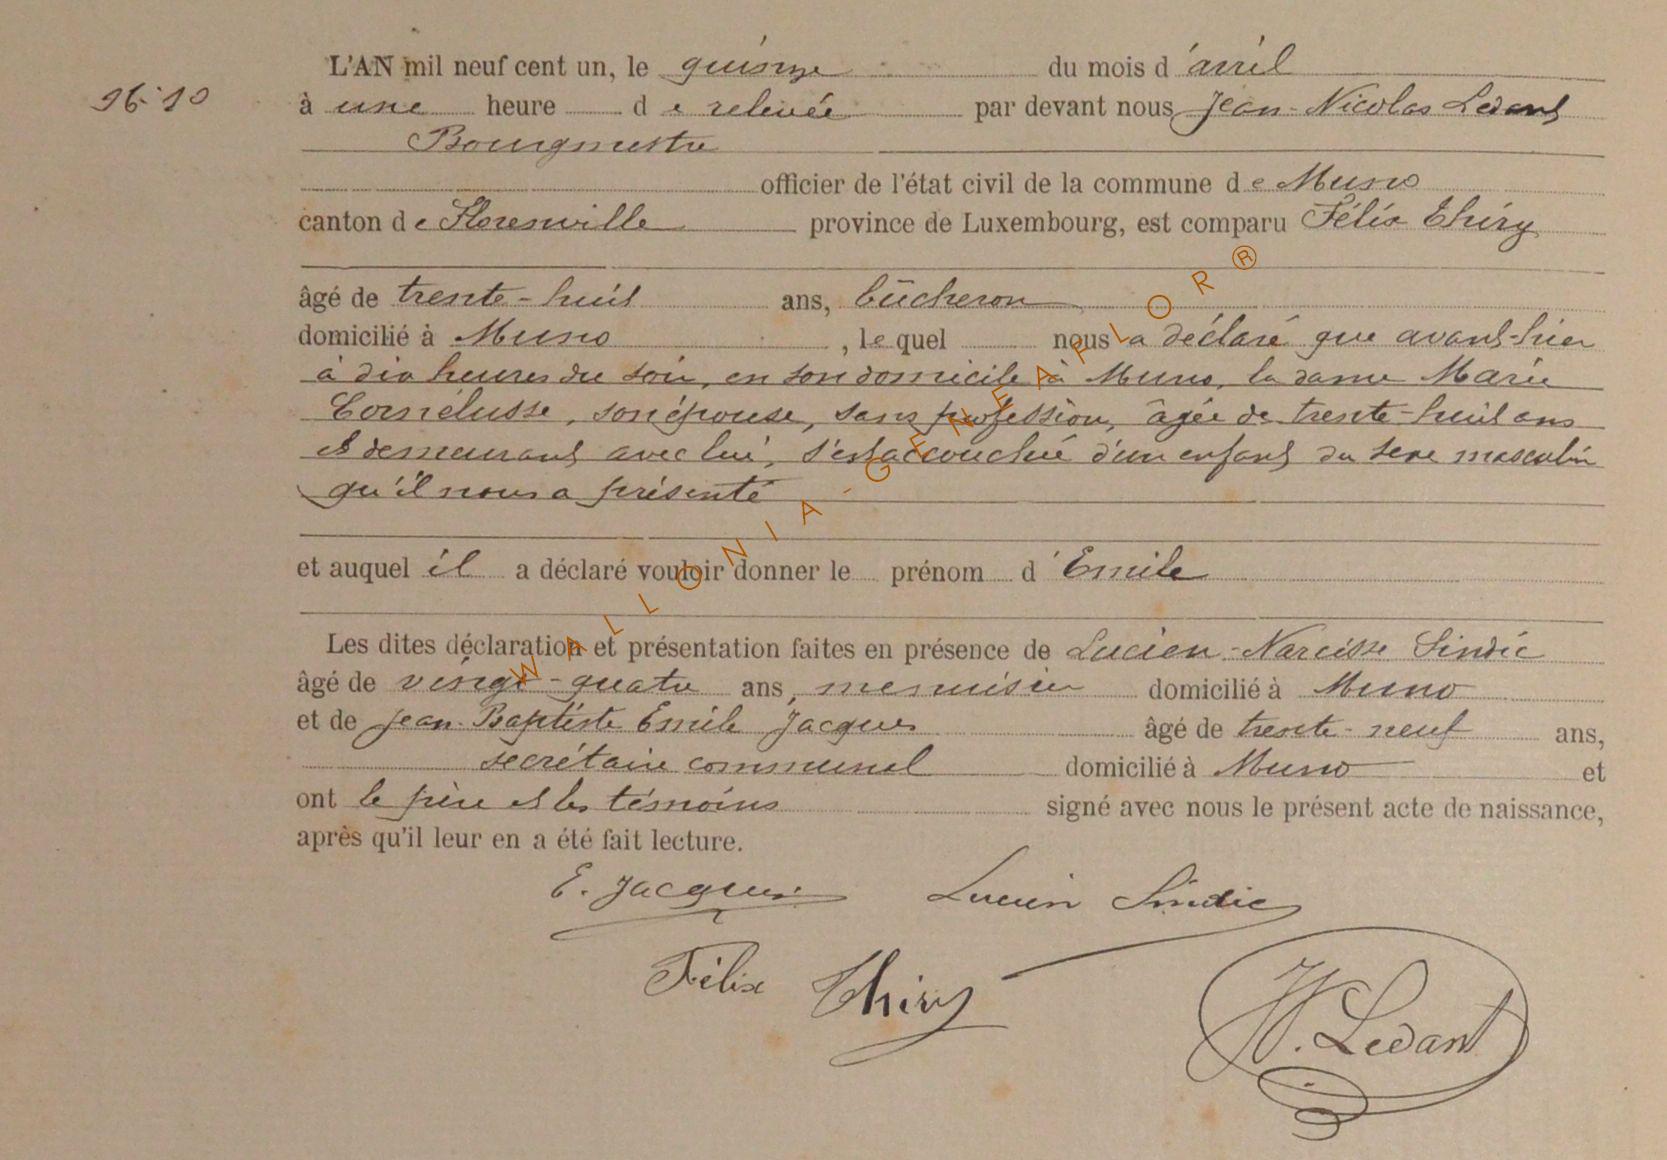 L'AN mil neuf cent un, le quinze du mois d'avril
96-10
à une heure de relevée par devant nous Jean-Nicolas Ledant
Bourgmestre
officier de l'état civil de la commune de Muno
canton de Florenville province de Luxembourg, est comparu Félix Thiry
âgé de trente-huit ans, bûcheron
domicilié à Muno, lequel nous a déclaré que avant-hier
à dix heures du soir, en son domicile à Muno, la dame Marie
Cornélusse, son épouse, sans profession, âgée de trente-huit ans
et demeurant avec lui, s'est accouchée d'un enfant du sexe masculin
qu'il nous a présenté
et auquel il a déclaré vouloir donner le prénom d'Emile
Les dites déclaration et présentation faites en présence de Lucien-Narcisse Sindic
âgé de vingt-quatre ans, menuisier domicilié à Muno
et de Jean-Baptiste Emile Jacques âgé de trente-neuf ans,
secrétaire communal domicilié à Muno et
ont le père et les témoins signé avec nous le présent acte de naissance,
après qu'il leur en a été fait lecture.
E. Jacques Lucien Sindic
Félix Thiry
N. Ledant
WALLONIA-GENEAFLOR®